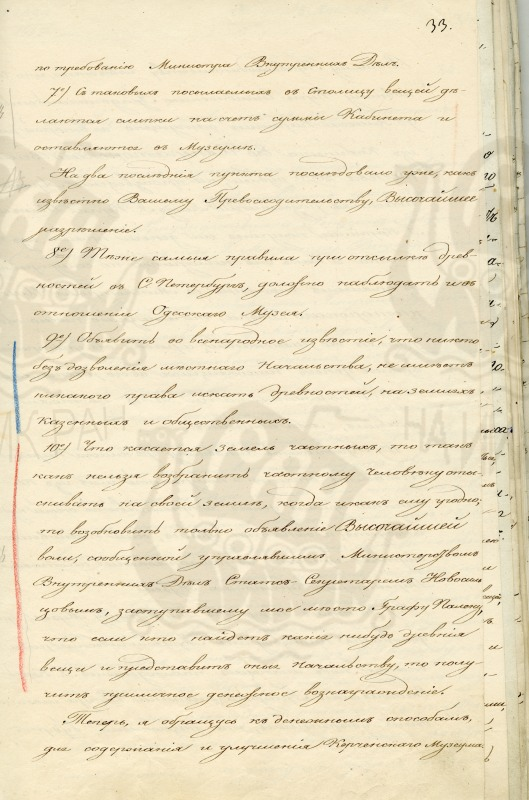 33.
по требованію Министра Внутреннихъ Дѣлъ.
7е) Съ таковыхъ посылаемыхъ въ Столицу вещей дѣ-
лаются слѣпки на счетъ суммы Кабинета и
оставляются въ Музеумѣ.
На два послѣднія пункта послѣдовало уже, какъ
извѣстно Вашему Превосходительству, Высочайшее
разрѣшеніе.
8е) Тѣже самыя правила при отсылкѣ древ-
ностей въ С. Петербургъ, должно наблюдать и въ
отношеніи Одесскаго Музея.
9е) Объявить во всенародное извѣстіе, что никто
безъ дозволенія мѣстнаго Начальства, не имѣетъ
никакого права искать древностей, на земляхъ
Казенныхъ и общественныхъ.
10е) Что касается земель частныхъ, то такъ
какъ нельзя возбранить частному человѣку оты-
скивать на своей землѣ, когда и какъ ему угодно,
то возобновить только объявленіе Высочайшей
воли, сообщенной управлявшимъ Министерствомъ
Внутреннихъ Дѣлъ Статсъ-Секретаремъ Новосиль
цовымъ, заступавшему мое мѣсто Графу Палену,
что если кто найдетъ какія нибудь древнія
вещи и представитъ оныя Начальству, то полу-
читъ приличное денежное вознагражденіе.
Теперь, я обращусь къ денежнымъ способамъ,
для содержанія и улучшенія Керченскаго Музеума